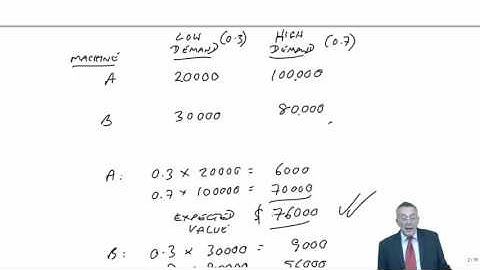 LOW (0.3) HIGH (0.7)
DEMAND DEMAND
MACHINE
A 20000 100,000
B 30000 80,000
A: 0.3 × 20000 = 6000
0.7 × 100000 = 70000
EXPECTED $ 76000
VALUE
B: 0.3 × 30000 = 9000
56000